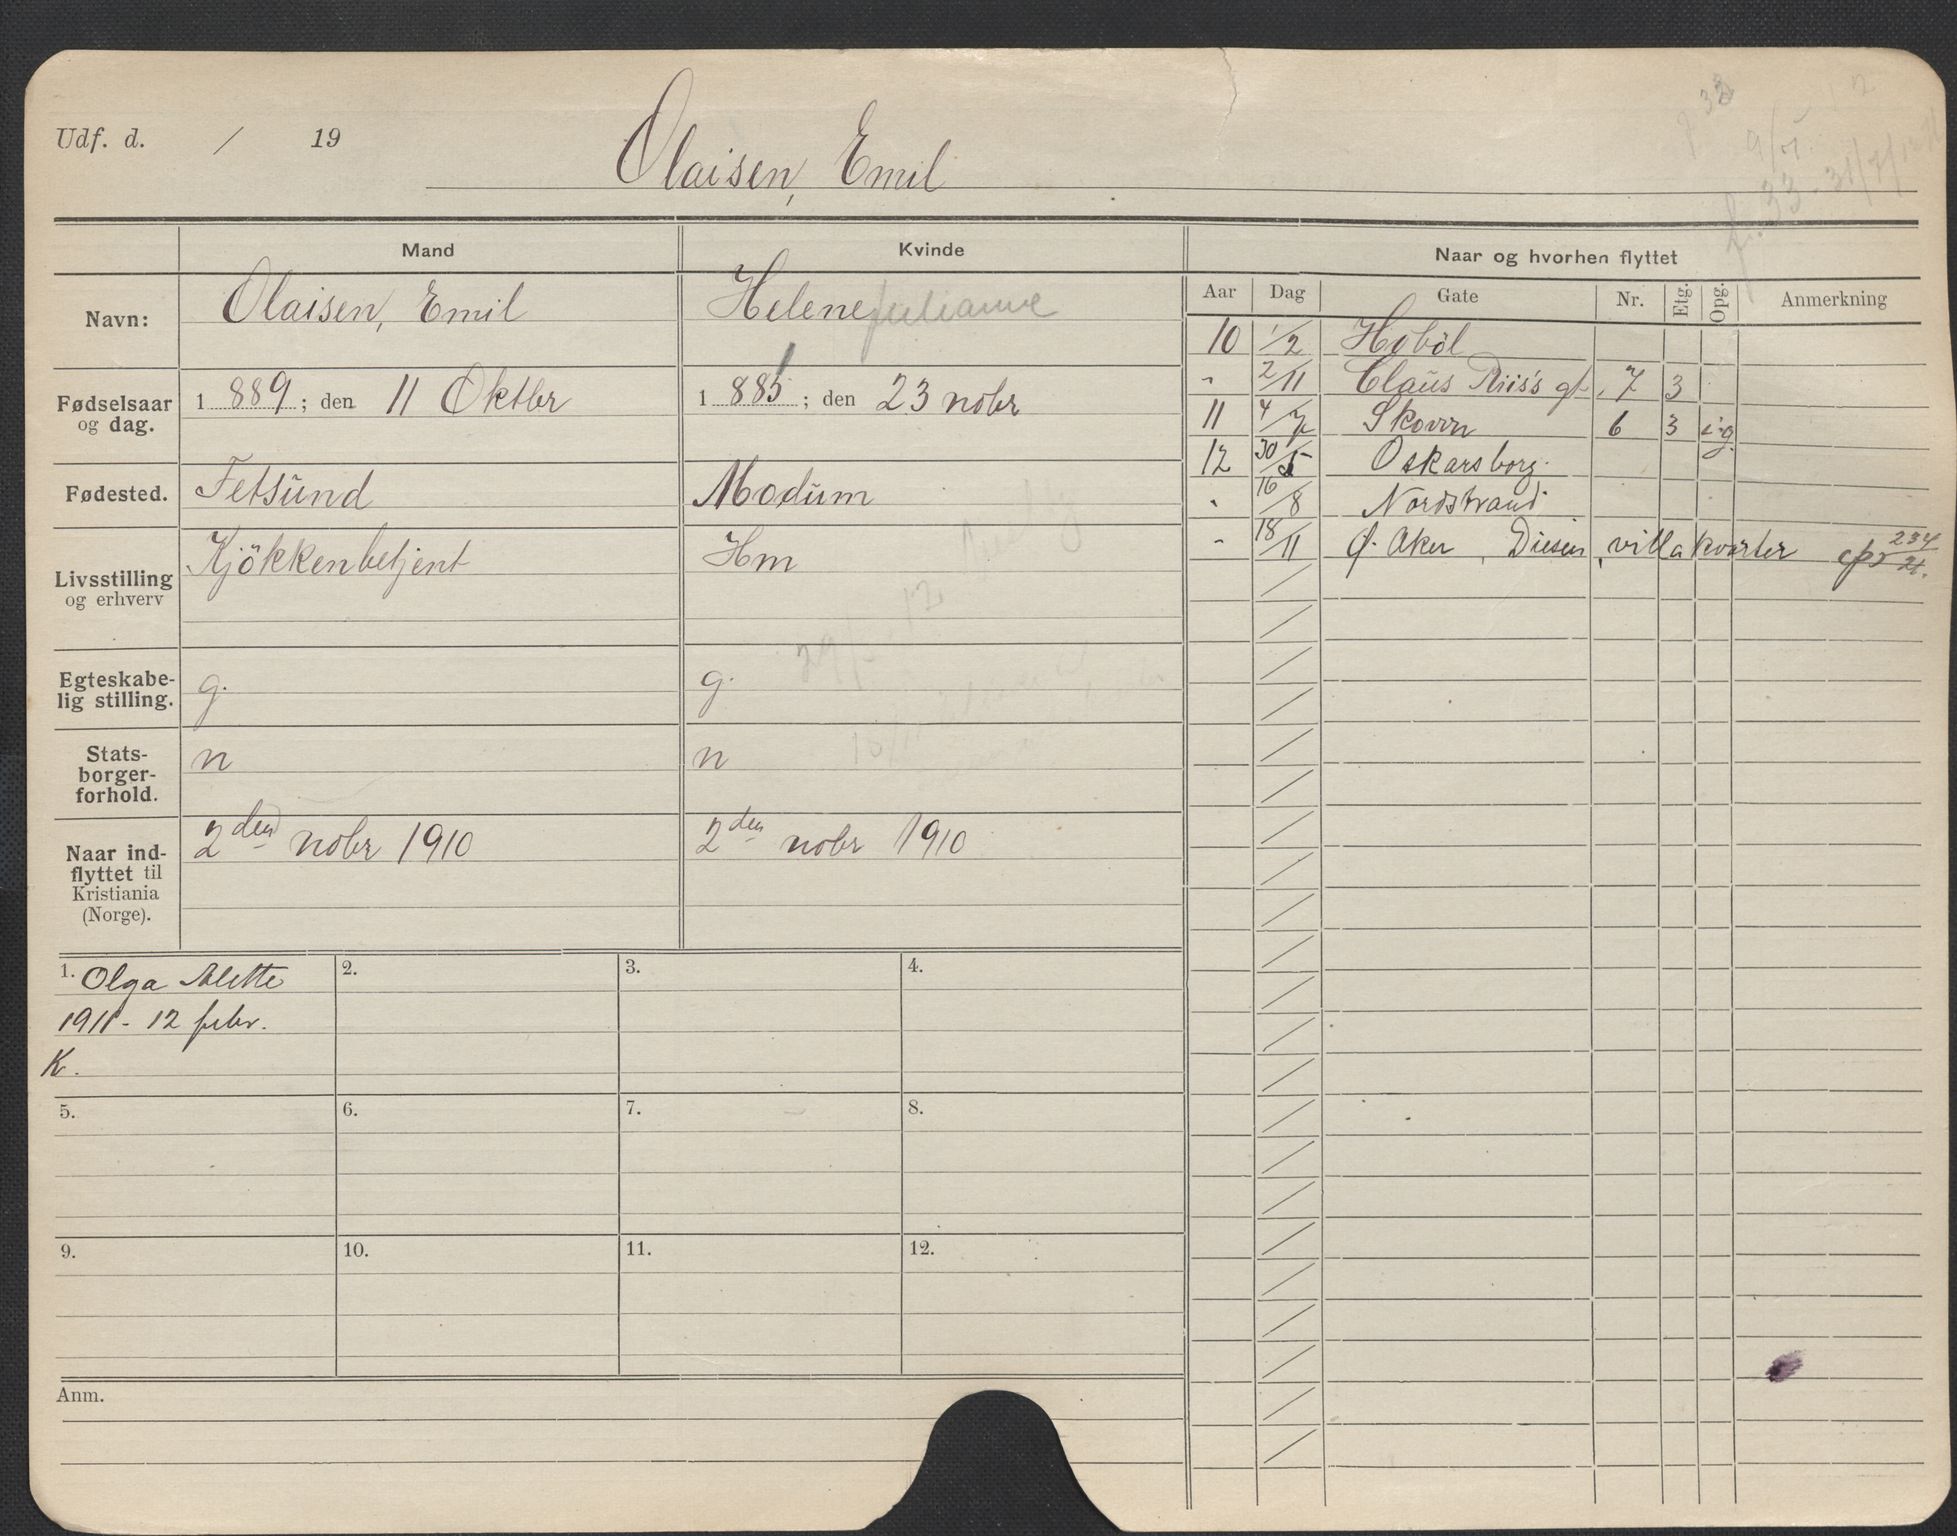 Udf. d. / 19
Olaisen, Emil
Mand Kvinde Naar og hvorhen flyttet
Aar Dag Gate Nr. Etg. Opg. Anmerkning
Navn: Olaisen, Emil Helene Julianne
Fødselsaar og dag. 1 889 ; den 11 Oktbr 1 885 ; den 23 nobr
Fødested. Fetsund Modum
Livsstilling og erhverv Kjökkenbetjent Hm
Egteskabe-
lig stilling. g. g.
Stats-
borger-
forhold. n n
Naar ind-
flyttet til
Kristiania
(Norge). 2den nobr 1910 2den nobr 1910
10 1/2 Hobøl
" 2/11 Claus Riis's gt. 7 3
11 4/7 Skovvn 6 3 i.g.
12 30/5 Oskarsborg.
" 16/8 Nordstrand
" 18/11 Ø. Aker, Disen, villakvarter 234/21.
1. Olga Alette
1911 - 12 febr.
K.
2.
3.
4.
5.
6.
7.
8.
9.
10.
11.
12.
Anm.